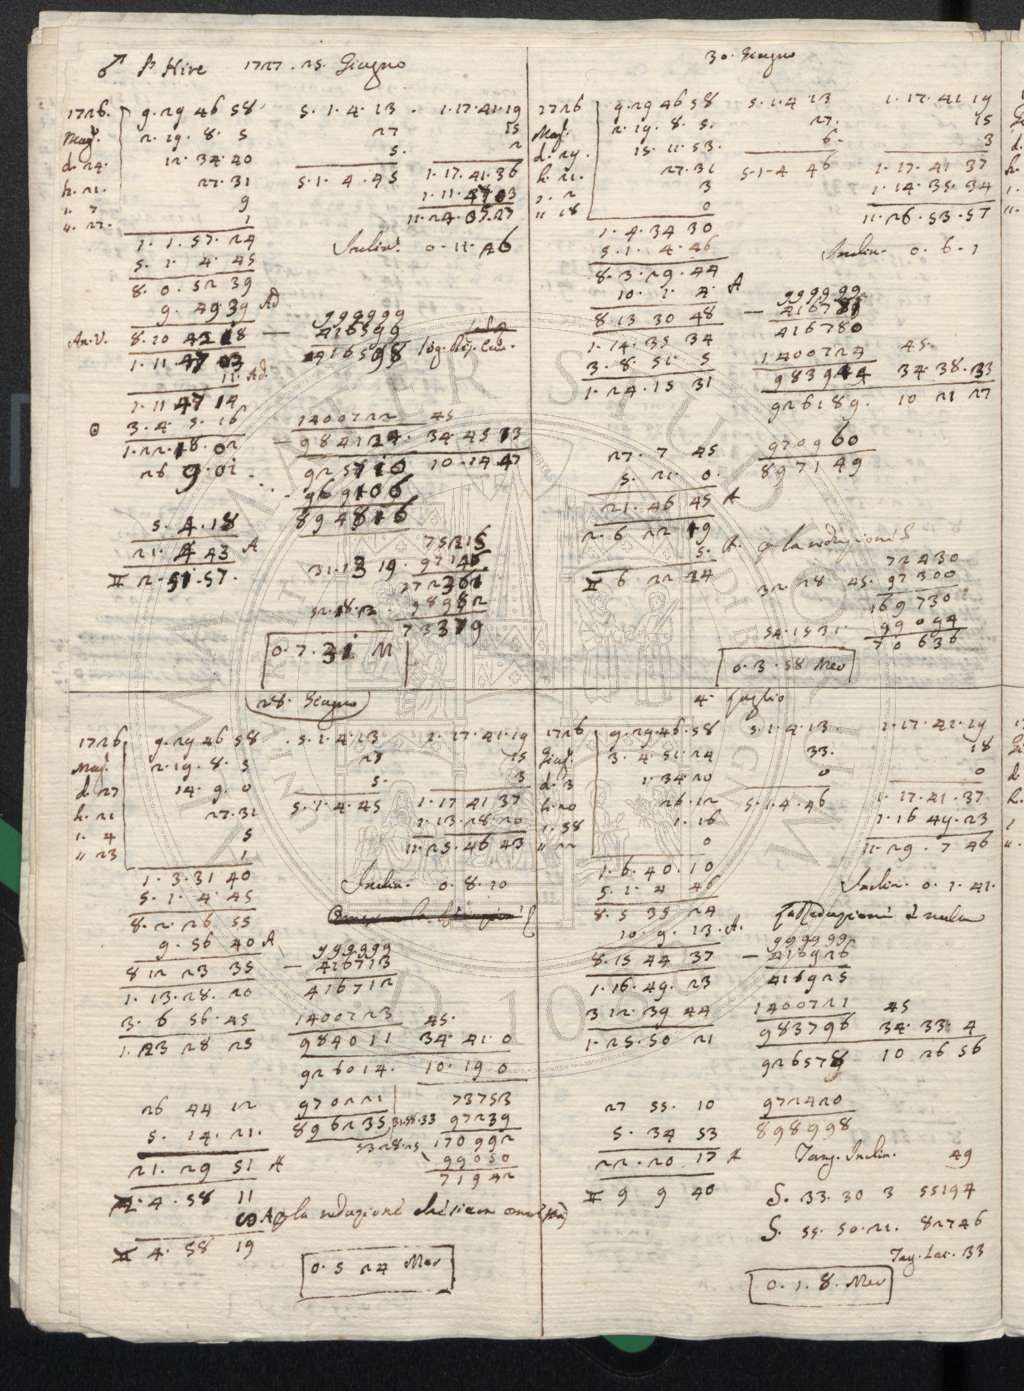 ♂ P. Hire 1727. 25. Giugno
1726. 9. 29 46 58 5. 1. 4. 13 . 1. 17. 41. 19
Mag. 2. 19. 8. 5 27 15
d. 24. 12. 34. 40 5. 2
h. 21. 27. 31 5. 1. 4. 45 1. 17. 41. 36
1. 7 9 1. 11. 47 03
". 22. 1 11. 24. 05. 27
1. 1. 57. 24 Inclin. 0. 11. 26
5. 1. 4. 45
8. 0. 52 39
9. 49 39 Ad 999999
An. V. 8. 10 42 18 — 416599
1. 11 47 03 416598 log. Rej. Cur.
11 Ad
1. 11 47 14 1400722 45
3. 4. 5. 16 984124. 34 45 13
1. 22. 18. 02 925710 10. 14 47
26 9. 01 969106
5. 4. 18 894816
21. 4 43 A 75215
II 2. 51. 57. 31. 13 19. 97146
172361
52. 18. 2 98982
73379
0. 7. 31 M
30. Giugno
1726 9. 29 46 58 5. 1. 4 13 1. 17. 41 19
Mag. 2. 19. 8. 5. 27. 15
d. 29. 15. 11. 53. 6. 3
h. 21. 27. 31 5. 1. 4 46 1. 17. 41 37
1. 2 3 1. 14. 35. 34
" 18 0 11. 26. 53. 57
1. 4. 34 30 Inclin. 0. 6. 1
5. 1. 4. 46
8. 3. 29. 44
10. 1. 4. A 999999
8. 13 30 48 — 416781
1. 14. 35 34 416780
3. 8. 51. 5 1400724 45.
1. 24. 15 31 983944 34. 38. 33
926189. 10 21 27
27. 7 45 970960
5. 21. 0. 897149
21. 46 45 A
2. 6 22 19
5. A. la reduzione S
II 6 22 24 72430
32 28 45. 97300
169730
54. 15 31. 99094
70636
0. 3. 58 Mer
28. Giugno
1726 9. 29 46 58 . 5. 1. 4. 13 1. 17. 41. 19
Mag. 2. 19. 8. 5 28 15
d. 27 14. 9. 0 5. 3
h. 21 27. 31 5. 1. 4. 45 1. 17 41 37
1. 4 5 1. 13. 28. 20
" 23 1 11. 25. 46 43
1. 3. 31 40 Inclin. 0. 8. 10
5. 1. 4. 45
8. 2. 26 55
9. 56 40 A 999999
8 12 23 35 — 416713
1. 13. 28. 20 416712
3. 6 56. 45 1400723 45.
1. 23 28 25 984011 34. 41. 0
926014. 10. 19 0
26 44 12 970221 73753
5. 14. 21. 896235 31. 55. 33 97239
21. 29 51 A 53 28. 25 170992
2. 4. 58 11 99050
8 A la reduzione 71942
II 4. 58 19
0. 5 24 Mer
4. Luglio
1726 9. 29. 46. 58 5. 1. 4. 13 1. 17. 41. 19
Giug. 3. 4. 51. 24 33. 18
d. 3 1. 34 20 0 0
h. 20 26. 12 5. 1. 4. 46 1. 17. 41. 37.
1. 58 1. 16 1. 16 49. 23
" 22 0 11. 29. 7 46
1. 6. 40. 10 Inclin. 0. 1. 41.
5. 1. 4 46
8. 5 35 24 La Reduzione è nulla
10. 9. 13. A. 999999
8. 15 44 37 — 416926
1. 16. 49. 23 416925
3 12. 39 44 1400721 45
1. 25. 50 21 983796 34. 33 4
926578 10 26 56
27 55. 10 972420
5. 34 53 898998
22. 20 17 A Tang. Inclin. 49
II 9 9 40 S. 33. 30 3 55194
S. 55. 50. 21. 82746
Tang. Lat. 33
0. 1. 8. Mer
ALMA MATER STUDIORUM
A. D. 1088